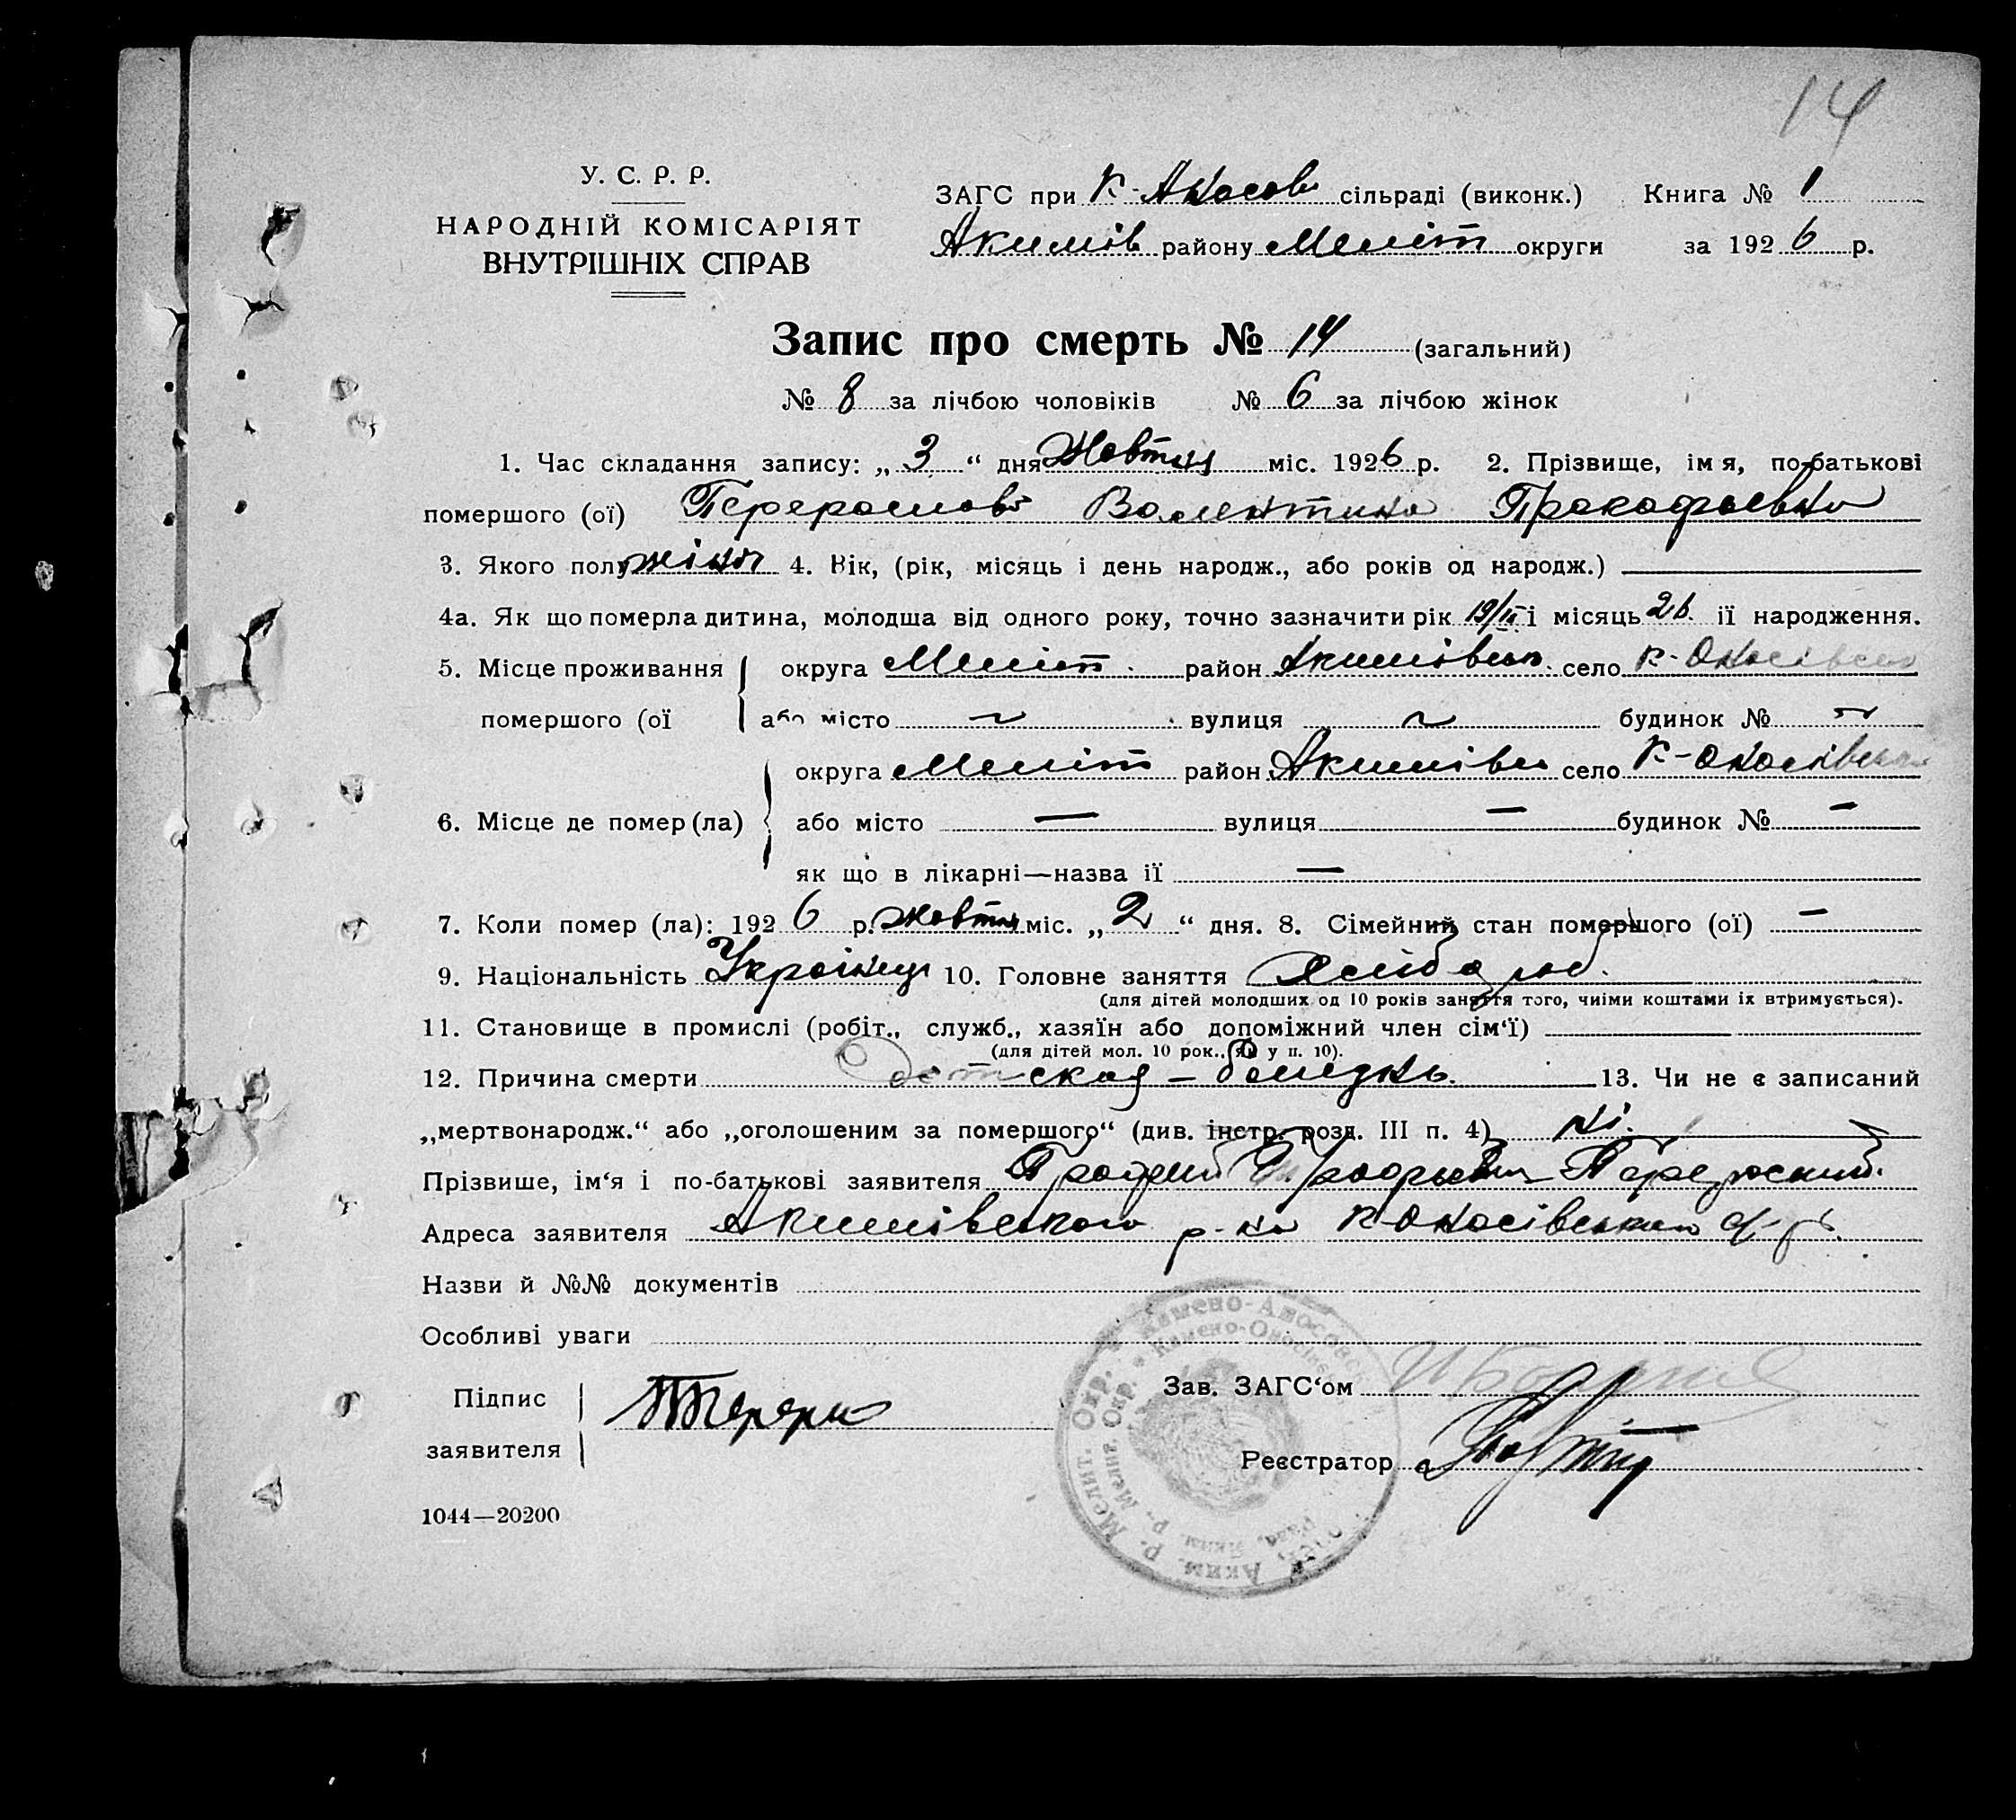 14
У. С. Р. Р.
НАРОДНІЙ КОМІСАРІЯТ
ВНУТРІШНІХ СПРАВ
ЗАГС при К-Аносов сільраді (виконк.) Книга № 1
Акимів району Меліт округи за 1926 р.
Запис про смерть № 14 (загальний)
№ 8 за лічбою чоловіків № 6 за лічбою жінок
1. Час складання запису: „3“ дня Жовтня міс. 1926 р. 2. Прізвище, імя, по-батькові
помершого (ої) Валентина Прокофьевна
3. Якого полу жіноч 4. Вік, (рік, місяць і день народж., або років од народж.)
4а. Як що померла дитина, молодша від одного року, точно зазначити рік і місяць 26. її народження.
5. Місце проживання округа Меліт. район Акимівськ. село К-Оносівсько
помершого (ої або місто вулиця будинок №
округа Меліт район Акимівсь село К-Оносівська
6. Місце де помер (ла) або місто — вулиця — будинок № —
як що в лікарні—назва її —
7. Коли помер (ла): 1926 р. жовтня міс. „2“ дня. 8. Сімейний стан помершого (ої) —
9. Національність Українц 10. Головне заняття Хлібороб.
(для дітей молодших од 10 років заняття того, чиіми коштами їх втримується).
11. Становище в промислі (робіт., служб., хазяїн або допоміжний член сім‘ї)
(для дітей мол. 10 рок., як у п. 10).
12. Причина смерти Детская - болезнь. 13. Чи не є записаний
„мертвонародж.“ або „оголошеним за помершого“ (див. інстр. розд. III п. 4) ні.
Прізвише, ім‘я і по-батькові заявителя
Адреса заявителя Акимівського р-на К-Оносівськоі с/-р.
Назви й №№ документів
Особливі уваги
Підпис
заявителя
Зав. ЗАГС‘ом
Реєстратор
1044—20200
Камено-Аносовс Аким. р. Мелит. Окр.
Камено-Оносівс Рада, Яким. р. Мелит. Окр.